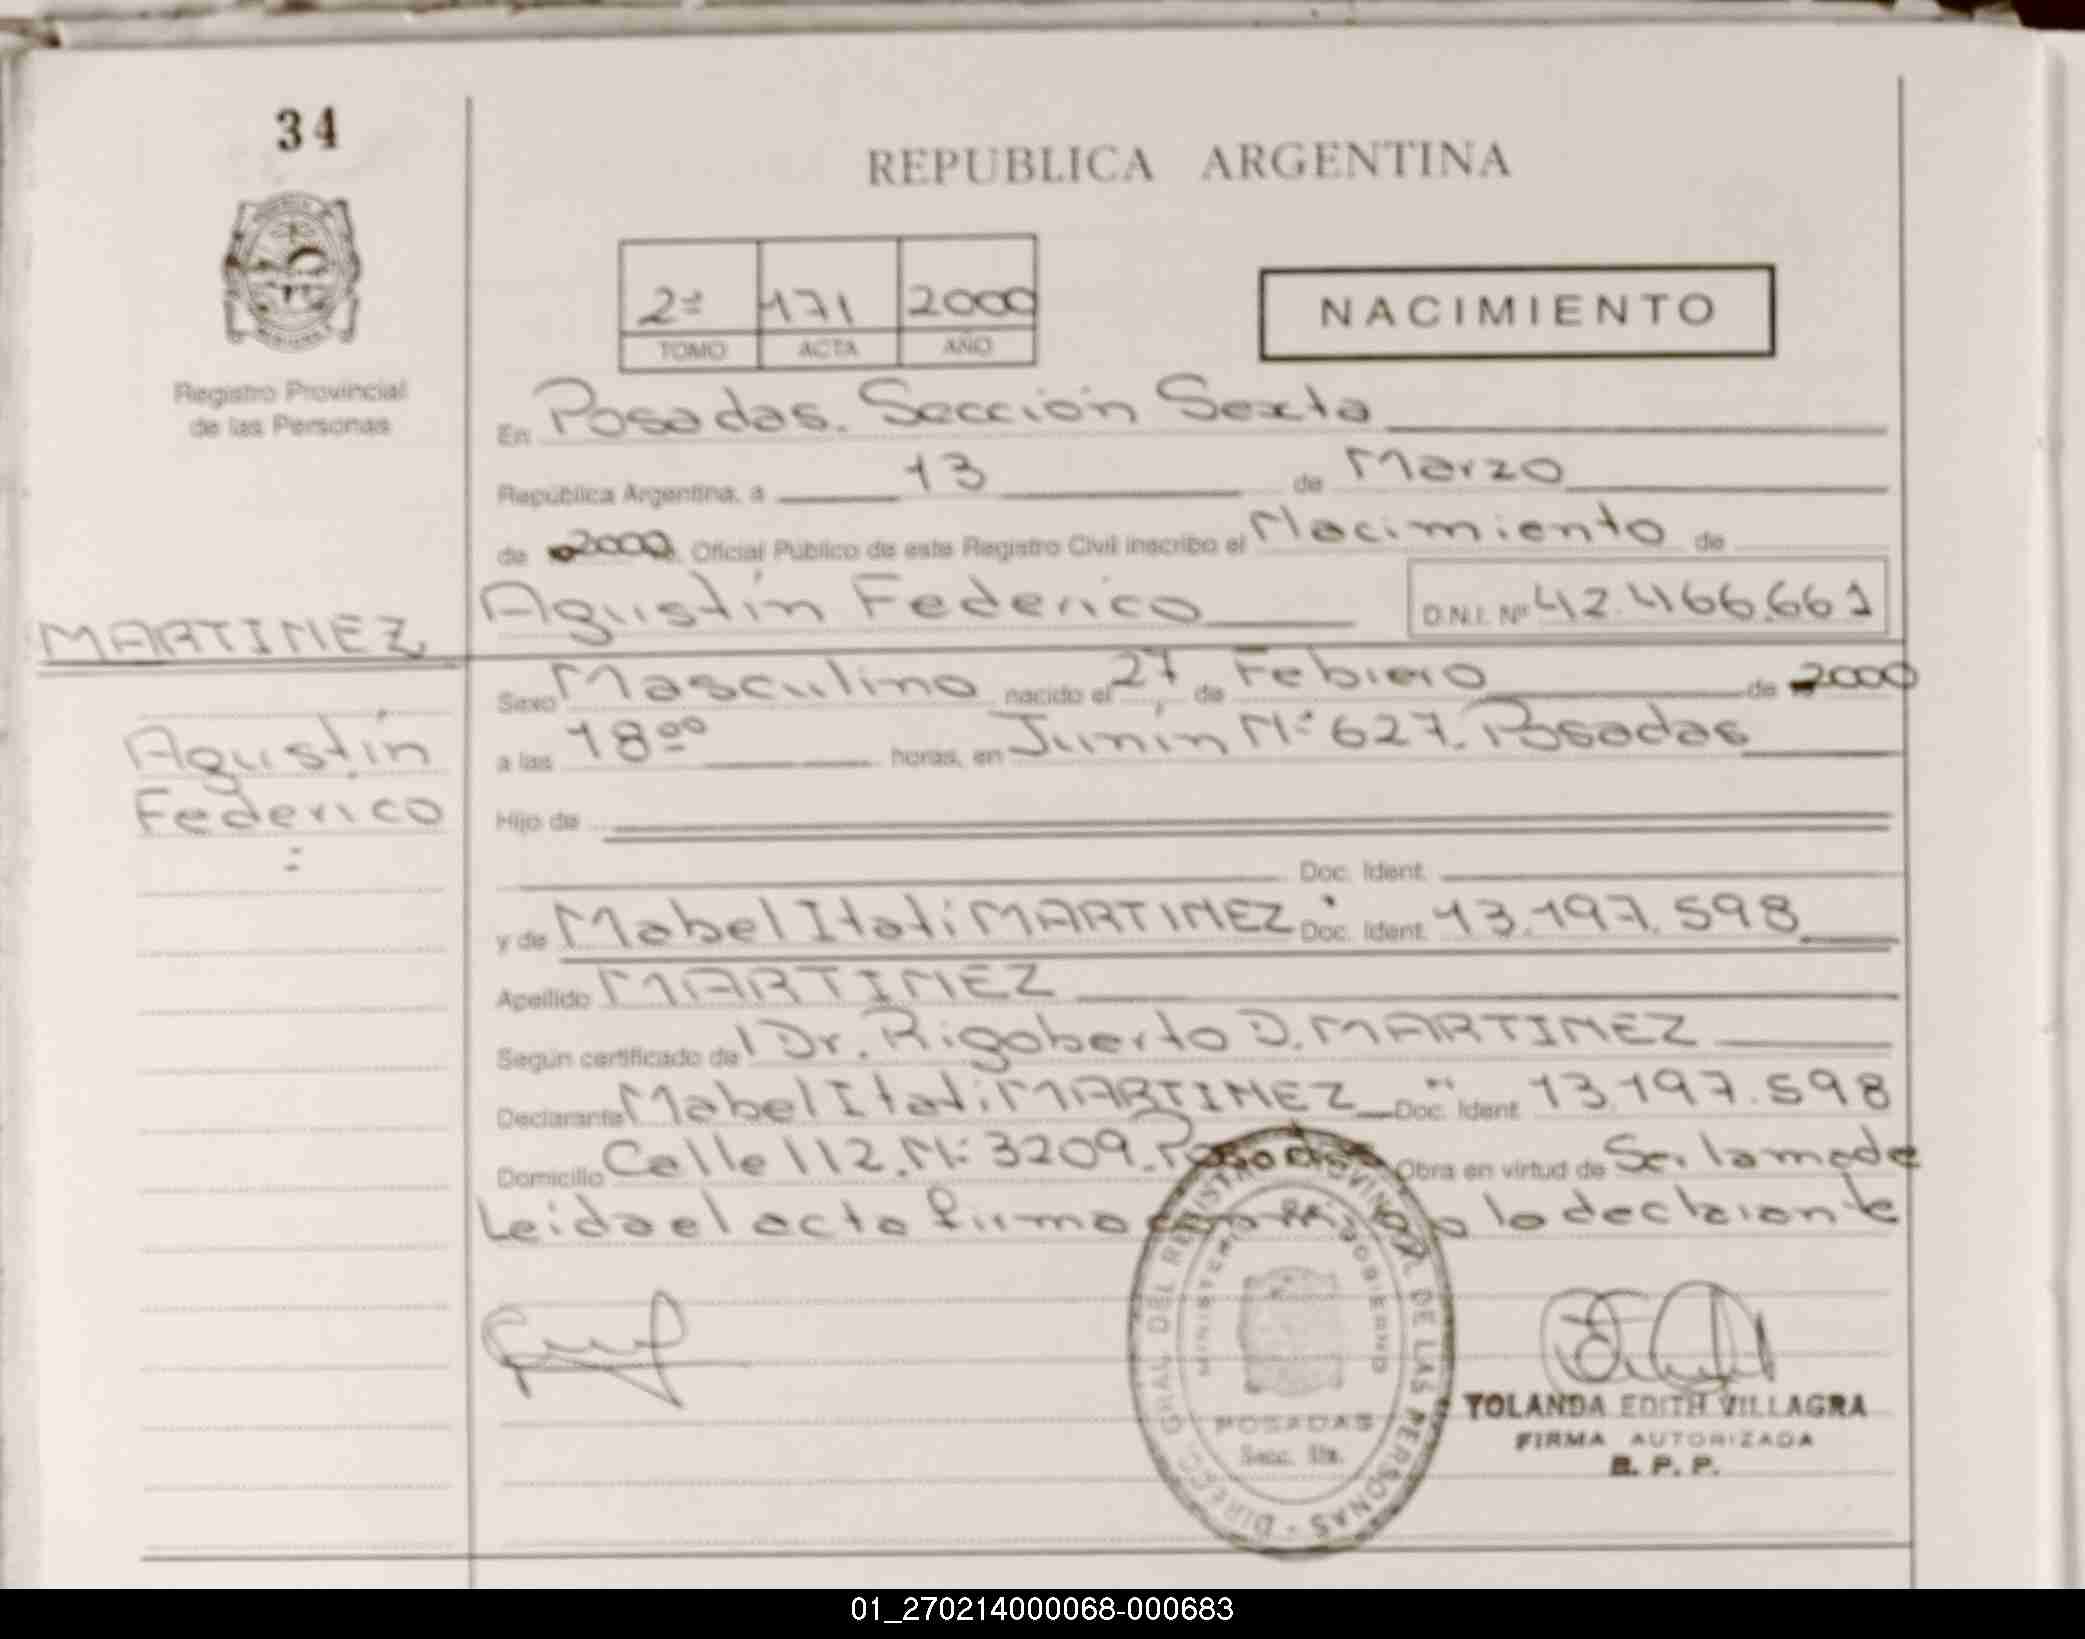 34
REPUBLICA ARGENTINA
2º 171 2000
TOMO ACTA AÑO
NACIMIENTO
Registro Provincial
de las Personas
En Posadas. Sección Sexta
República Argentina, a 13 de Marzo
de 2000, Oficial Público de este Registro Civil inscribo el Nacimiento de
Agustín Federico D.N.I. Nº 42.466.661
MARTINEZ
Agustín
Federico
Sexo Masculino nacido el 27 de Febrero de 2000
a las 18ºº horas, en Junín Nº 627. Posadas
Hijo de
Doc. Ident.
y de Mabel Itatí MARTINEZ Doc. Ident. 13.197.598
Apellido MARTINEZ
Según certificado del Dr. Rigoberto D. MARTINEZ
Declarante Mabel Itatí MARTINEZ Doc. Ident. 13.197.598
Domicilio Calle 112. Nº 3209. Posadas Obra en virtud de Ser la madre
Leida el acta firma la declarante
DIRECC. GRAL. DEL REGISTRO PROVINCIAL DE LAS PERSONAS
MINISTERIO DE GOBIERNO
POSADAS
Secc. 6ta.
YOLANDA EDITH VILLAGRA
FIRMA AUTORIZADA
R. P. P.
01_270214000068-000683